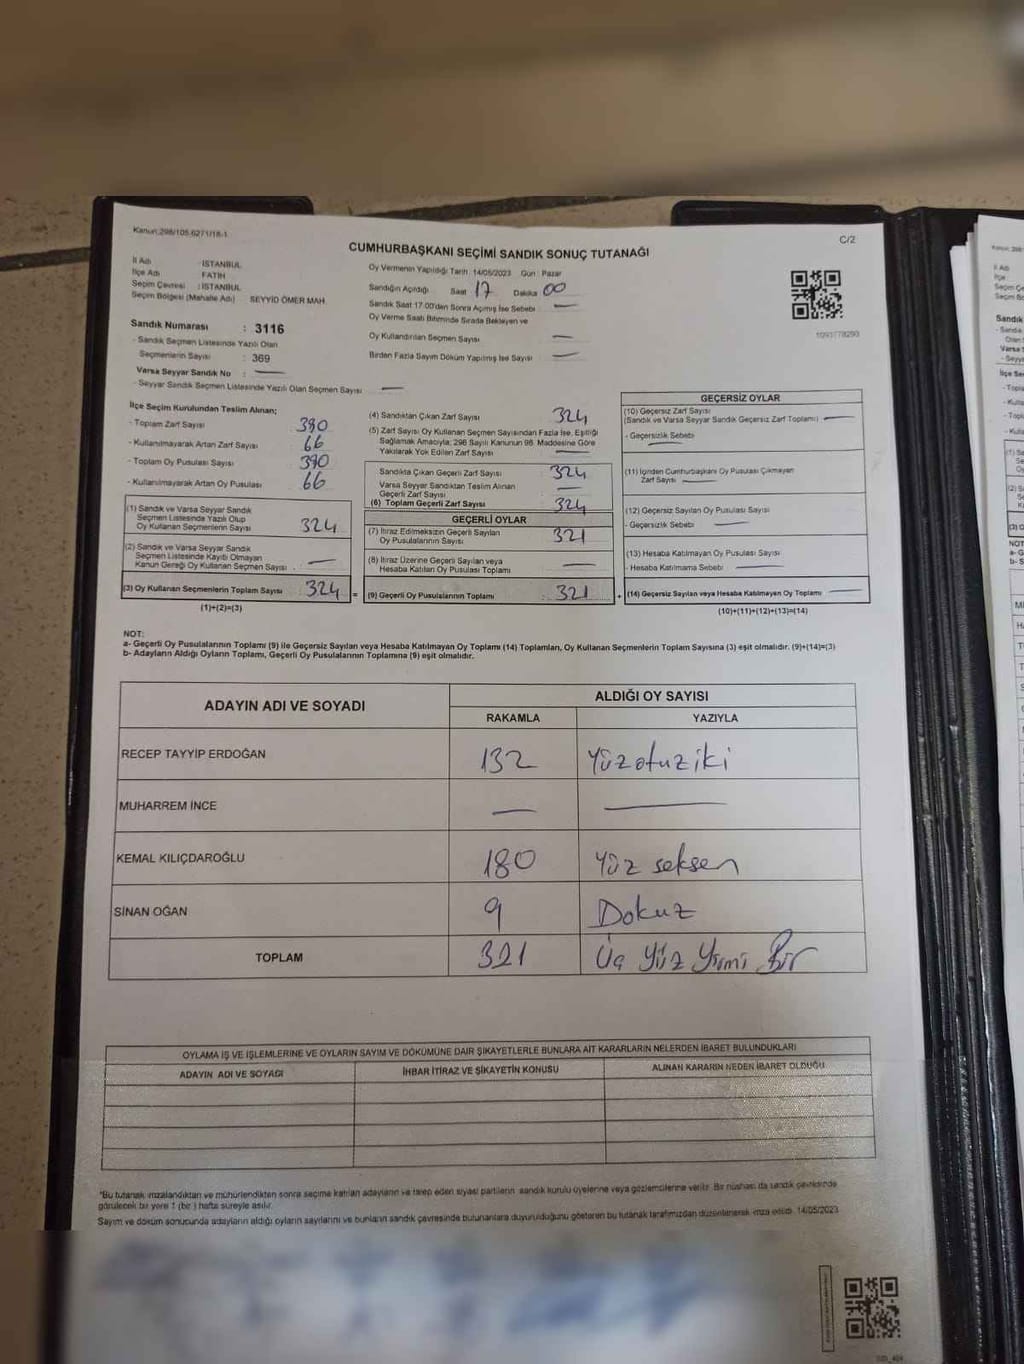 Kanun:298/105.6271/18-1
C/2
CUMHURBAŞKANI SEÇİMİ SANDIK SONUÇ TUTANAĞI
İl Adı : İSTANBUL
İlçe Adı : FATİH
Seçim Çevresi : İSTANBUL
Seçim Bölgesi (Mahalle Adı) SEYYİD ÖMER MAH.
Sandık Numarası : 3116
- Sandık Seçmen Listesinde Yazılı Olan
Seçmenlerin Sayısı : 369
Varsa Seyyar Sandık No : —
- Seyyar Sandık Seçmen Listesinde Yazılı Olan Seçmen Sayısı : —
Oy Vermenin Yapıldığı Tarih: 14/05/2023 Gün : Pazar
Sandığın Açıldığı Saat 17 Dakika 00
Sandık Saat 17:00'den Sonra Açılmış İse Sebebi : —
Oy Verme Saati Bitiminde Sırada Bekleyen ve
Oy Kullandırılan Seçmen Sayısı —
Birden Fazla Sayım Döküm Yapılmış İse Sayısı —
1093778293
İlçe Seçim Kurulundan Teslim Alınan;
- Toplam Zarf Sayısı : 390
- Kullanılmayarak Artan Zarf Sayısı : 66
- Toplam Oy Pusulası Sayısı : 390
- Kullanılmayarak Artan Oy Pusulası : 66
(1) Sandık ve Varsa Seyyar Sandık
Seçmen Listesinde Yazılı Olup
Oy Kullanan Seçmenlerin Sayısı : 324
(2) Sandık ve Varsa Seyyar Sandık
Seçmen Listesinde Kayıtlı Olmayan
Kanun Gereği Oy Kullanan Seçmen Sayısı : —
(3) Oy Kullanan Seçmenlerin Toplam Sayısı : 324 =
(1)+(2)=(3)
(4) Sandıktan Çıkan Zarf Sayısı : 324
(5) Zarf Sayısı Oy Kullanan Seçmen Sayısından Fazla İse, Eşitliği
Sağlamak Amacıyla; 298 Sayılı Kanunun 98. Maddesine Göre
Yakılarak Yok Edilen Zarf Sayısı : —
Sandıkta Çıkan Geçerli Zarf Sayısı : 324
Varsa Seyyar Sandıktan Teslim Alınan
Geçerli Zarf Sayısı : —
(6) Toplam Geçerli Zarf Sayısı : 324
GEÇERLİ OYLAR
(7) İtiraz Edilmeksizin Geçerli Sayılan
Oy Pusulalarının Sayısı : 321
(8) İtiraz Üzerine Geçerli Sayılan veya
Hesaba Katılan Oy Pusulası Toplamı : —
(9) Geçerli Oy Pusulalarının Toplamı : 321 +
GEÇERSİZ OYLAR
(10) Geçersiz Zarf Sayısı
(Sandık ve Varsa Seyyar Sandık Geçersiz Zarf Toplamı) : —
- Geçersizlik Sebebi : —
(11) İçinden Cumhurbaşkanı Oy Pusulası Çıkmayan
Zarf Sayısı : —
(12) Geçersiz Sayılan Oy Pusulası Sayısı :
- Geçersizlik Sebebi : —
(13) Hesaba Katılmayan Oy Pusulası Sayısı :
- Hesaba Katılmama Sebebi : —
(14) Geçersiz Sayılan veya Hesaba Katılmayan Oy Toplamı : —
(10)+(11)+(12)+(13)=(14)
NOT:
a- Geçerli Oy Pusulalarının Toplamı (9) ile Geçersiz Sayılan veya Hesaba Katılmayan Oy Toplamı (14) Toplamları, Oy Kullanan Seçmenlerin Toplam Sayısına (3) eşit olmalıdır. (9)+(14)=(3)
b- Adayların Aldığı Oyların Toplamı, Geçerli Oy Pusulalarının Toplamına (9) eşit olmalıdır.
ADAYIN ADI VE SOYADI
ALDIĞI OY SAYISI
RAKAMLA YAZIYLA
RECEP TAYYİP ERDOĞAN 132 Yüzotuziki
MUHARREM İNCE — —
KEMAL KILIÇDAROĞLU 180 Yüz seksen
SİNAN OĞAN 9 Dokuz
TOPLAM 321 Üç Yüz Yirmi Bir
OYLAMA İŞ VE İŞLEMLERİNE VE OYLARIN SAYIM VE DÖKÜMÜNE DAİR ŞİKAYETLERLE BUNLARA AİT KARARLARIN NELERDEN İBARET BULUNDUKLARI
ADAYIN ADI VE SOYADI İHBAR İTİRAZ VE ŞİKAYETİN KONUSU ALINAN KARARIN NEDEN İBARET OLDUĞU
*Bu tutanak imzalandıktan ve mühürlendikten sonra seçime katılan adayların ve talep eden siyasi partilerin sandık kurulu üyelerine veya gözlemcilerine verilir. Bir nüshası da sandık çevresinde
görülecek bir yere 1 (bir ) hafta süreyle asılır.
Sayım ve döküm sonucunda adayların aldığı oyların sayılarını ve bunların sandık çevresinde bulunanlara duyurulduğunu gösteren bu tutanak tarafımızdan düzenlenerek imza edildi. 14/05/2023